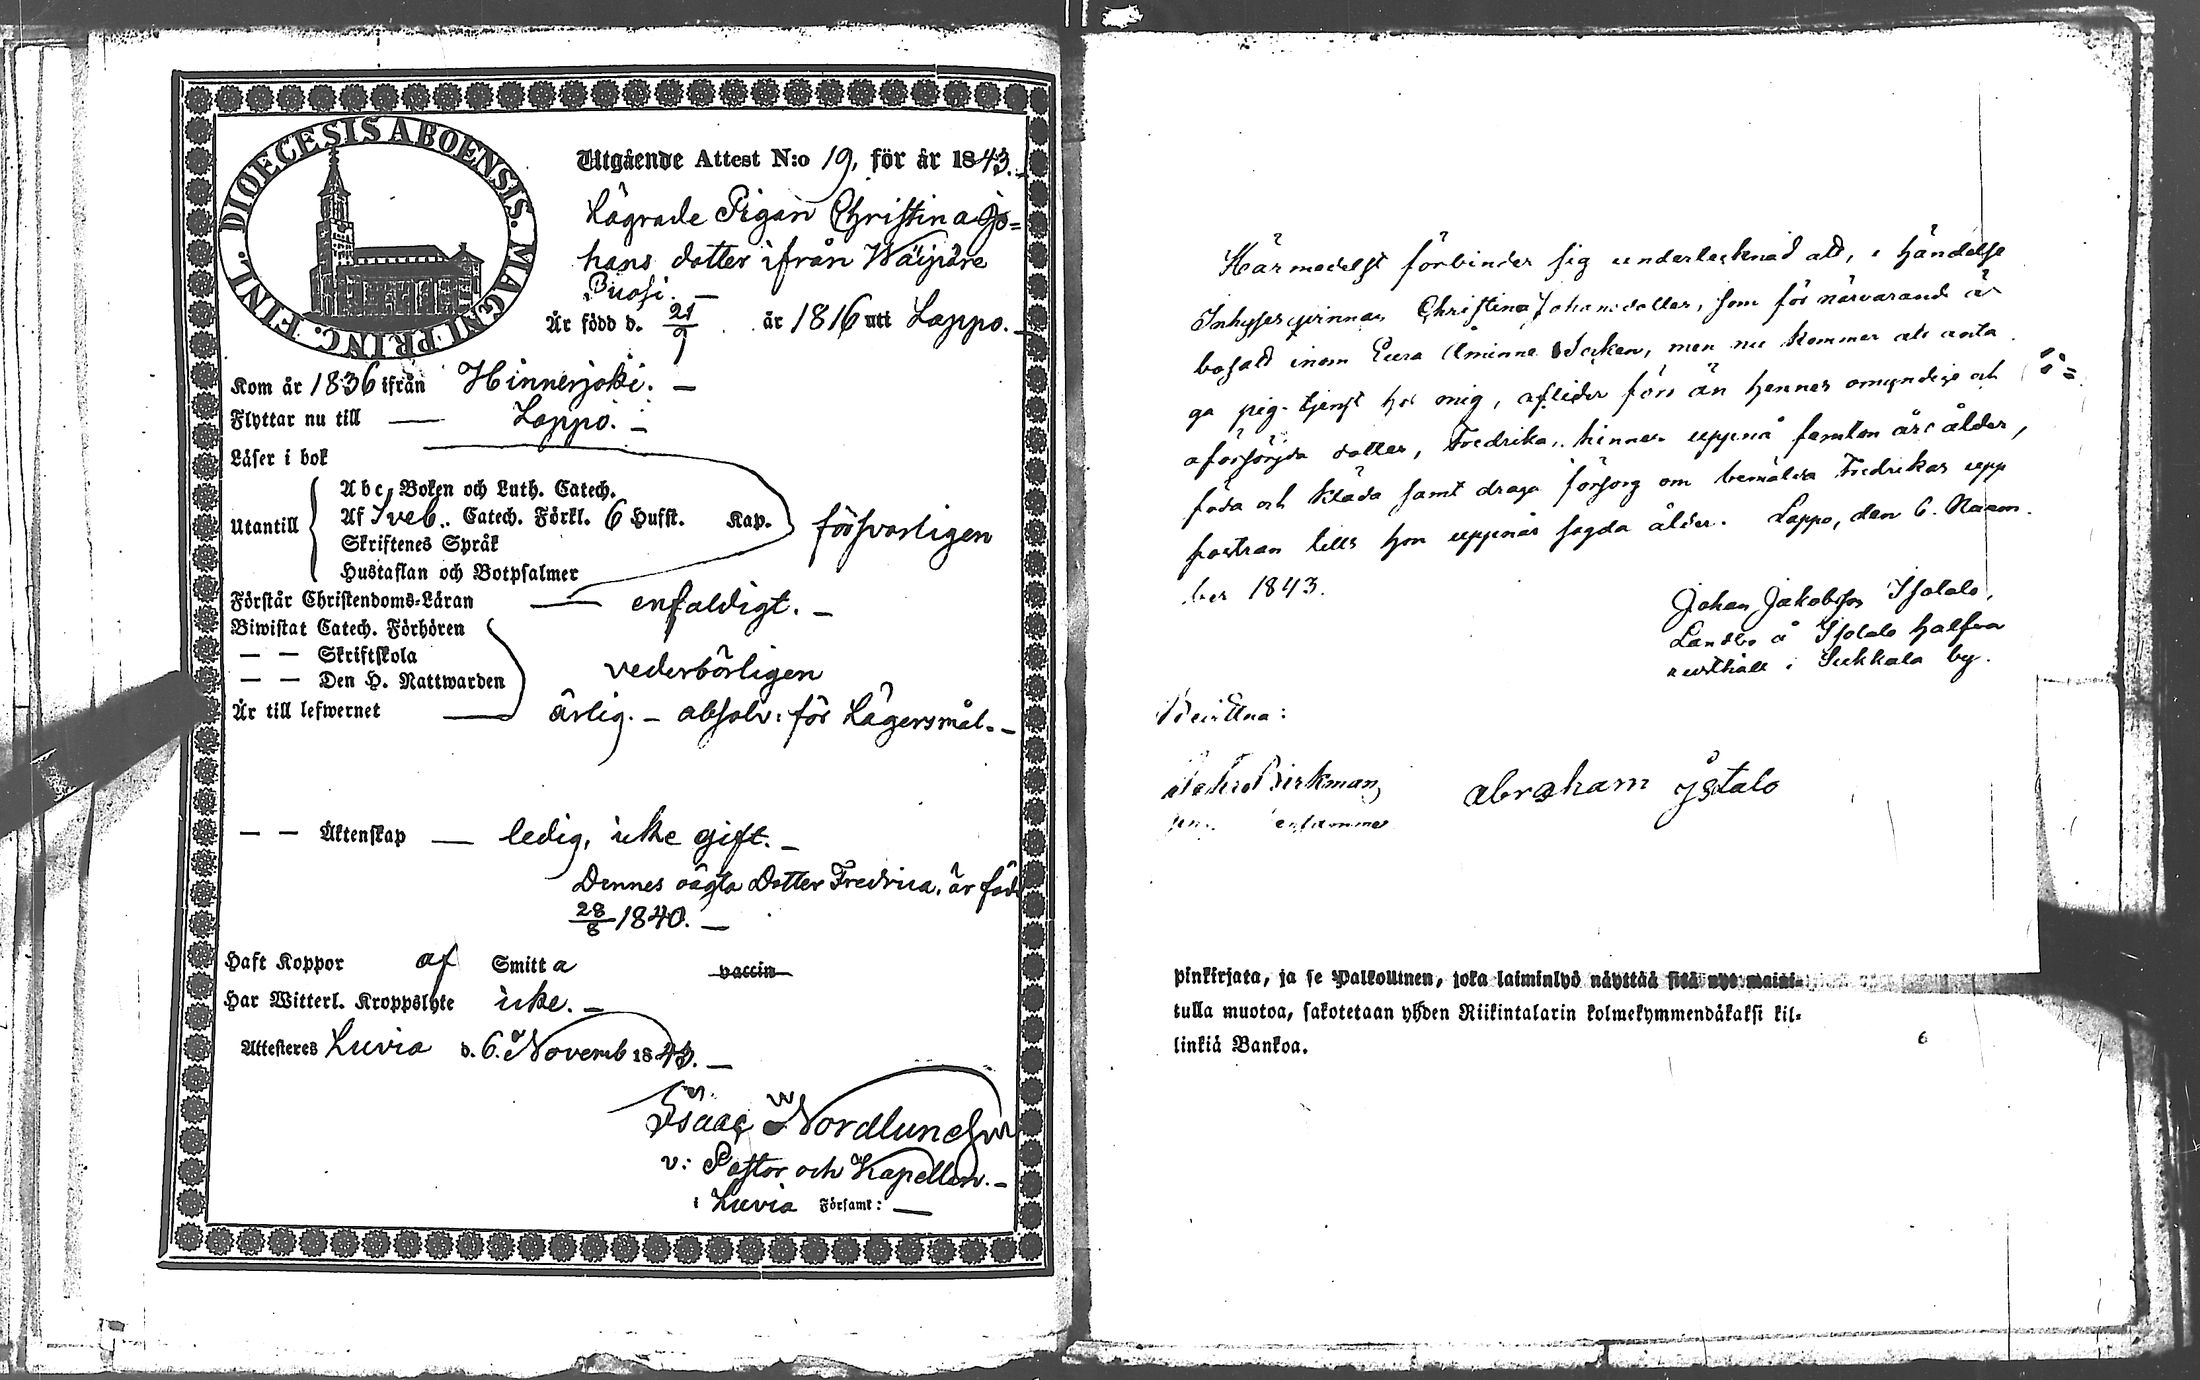 DIOECESIS ABOENSIS. MAGNI PRINC. FINL.
Utgående Attest N:o 19, för år 1843.
Lägrade Pigan Christina Jo=
hans dotter ifrån Wäipäre
Buosi. —
Är född d. 21/9 år 1816 uti Lappo. —
Kom år 1836 ifrån Hinnerjoki. —
Flyttar nu till — Lappo. —
Läser i bok
Utantill
Abc Boken och Luth. Catech.
Af Sveb. Catech. Förkl. 6 Hufst. Kap.
Skriftenes Språk
Hustaflan och Botpsalmer
försvarligen
Förstår Christendoms-Läran — enfaldigt. —
Biwistat Catech. Förhören
— — Skriftskola
— — Den H. Nattwarden
vederbörligen
Är till lefwernet — ärlig. — absolv: för Lägersmål. —
— — Äktenskap — ledig, icke gift. —
Dennes oägta Dotter Fredrica, är född
28/8 1840. —
Haft Koppor af Smitta vaccin
Har Witterl. Kroppslyte icke. —
Attesteras Luvia d. 6. Novemb 1843. —
Isaac Nordlund
v: Pastor och Kapellan. —
i Luvia Församl: —
Härmedelst förbinder sig undertecknad att, i händelse
Inhyses qvinnan Christina Johansdotter, som för närvarande är
bosatt inom Eura Åminne Socken, men nu kommer att anta
ga pig-tjenst hos mig, aflider förr än hennes omyndige och
oförsörjda dotter, Fredrika, hinner uppnå femton års ålder,
föda och kläda samt draga försorg om bemälda Fredrikas upp
fostran tills hon uppnår sagda ålder. Lappo, den 6. Novem
ber 1843.
Johan Jakobsson Isotalo,
Landbo å Isotalo halfva
rusthåll i Sukkala by.
Bevittna:
Birkman, abraham ystalo
pinkirjata, ja se Palkollinen, joka laiminlyö näyttää sitä nyt maini-
tulla muotoa, sakotetaan yhden Riikintalarin kolmekymmendäkaksi kil-
linkiä Bankoa.
6